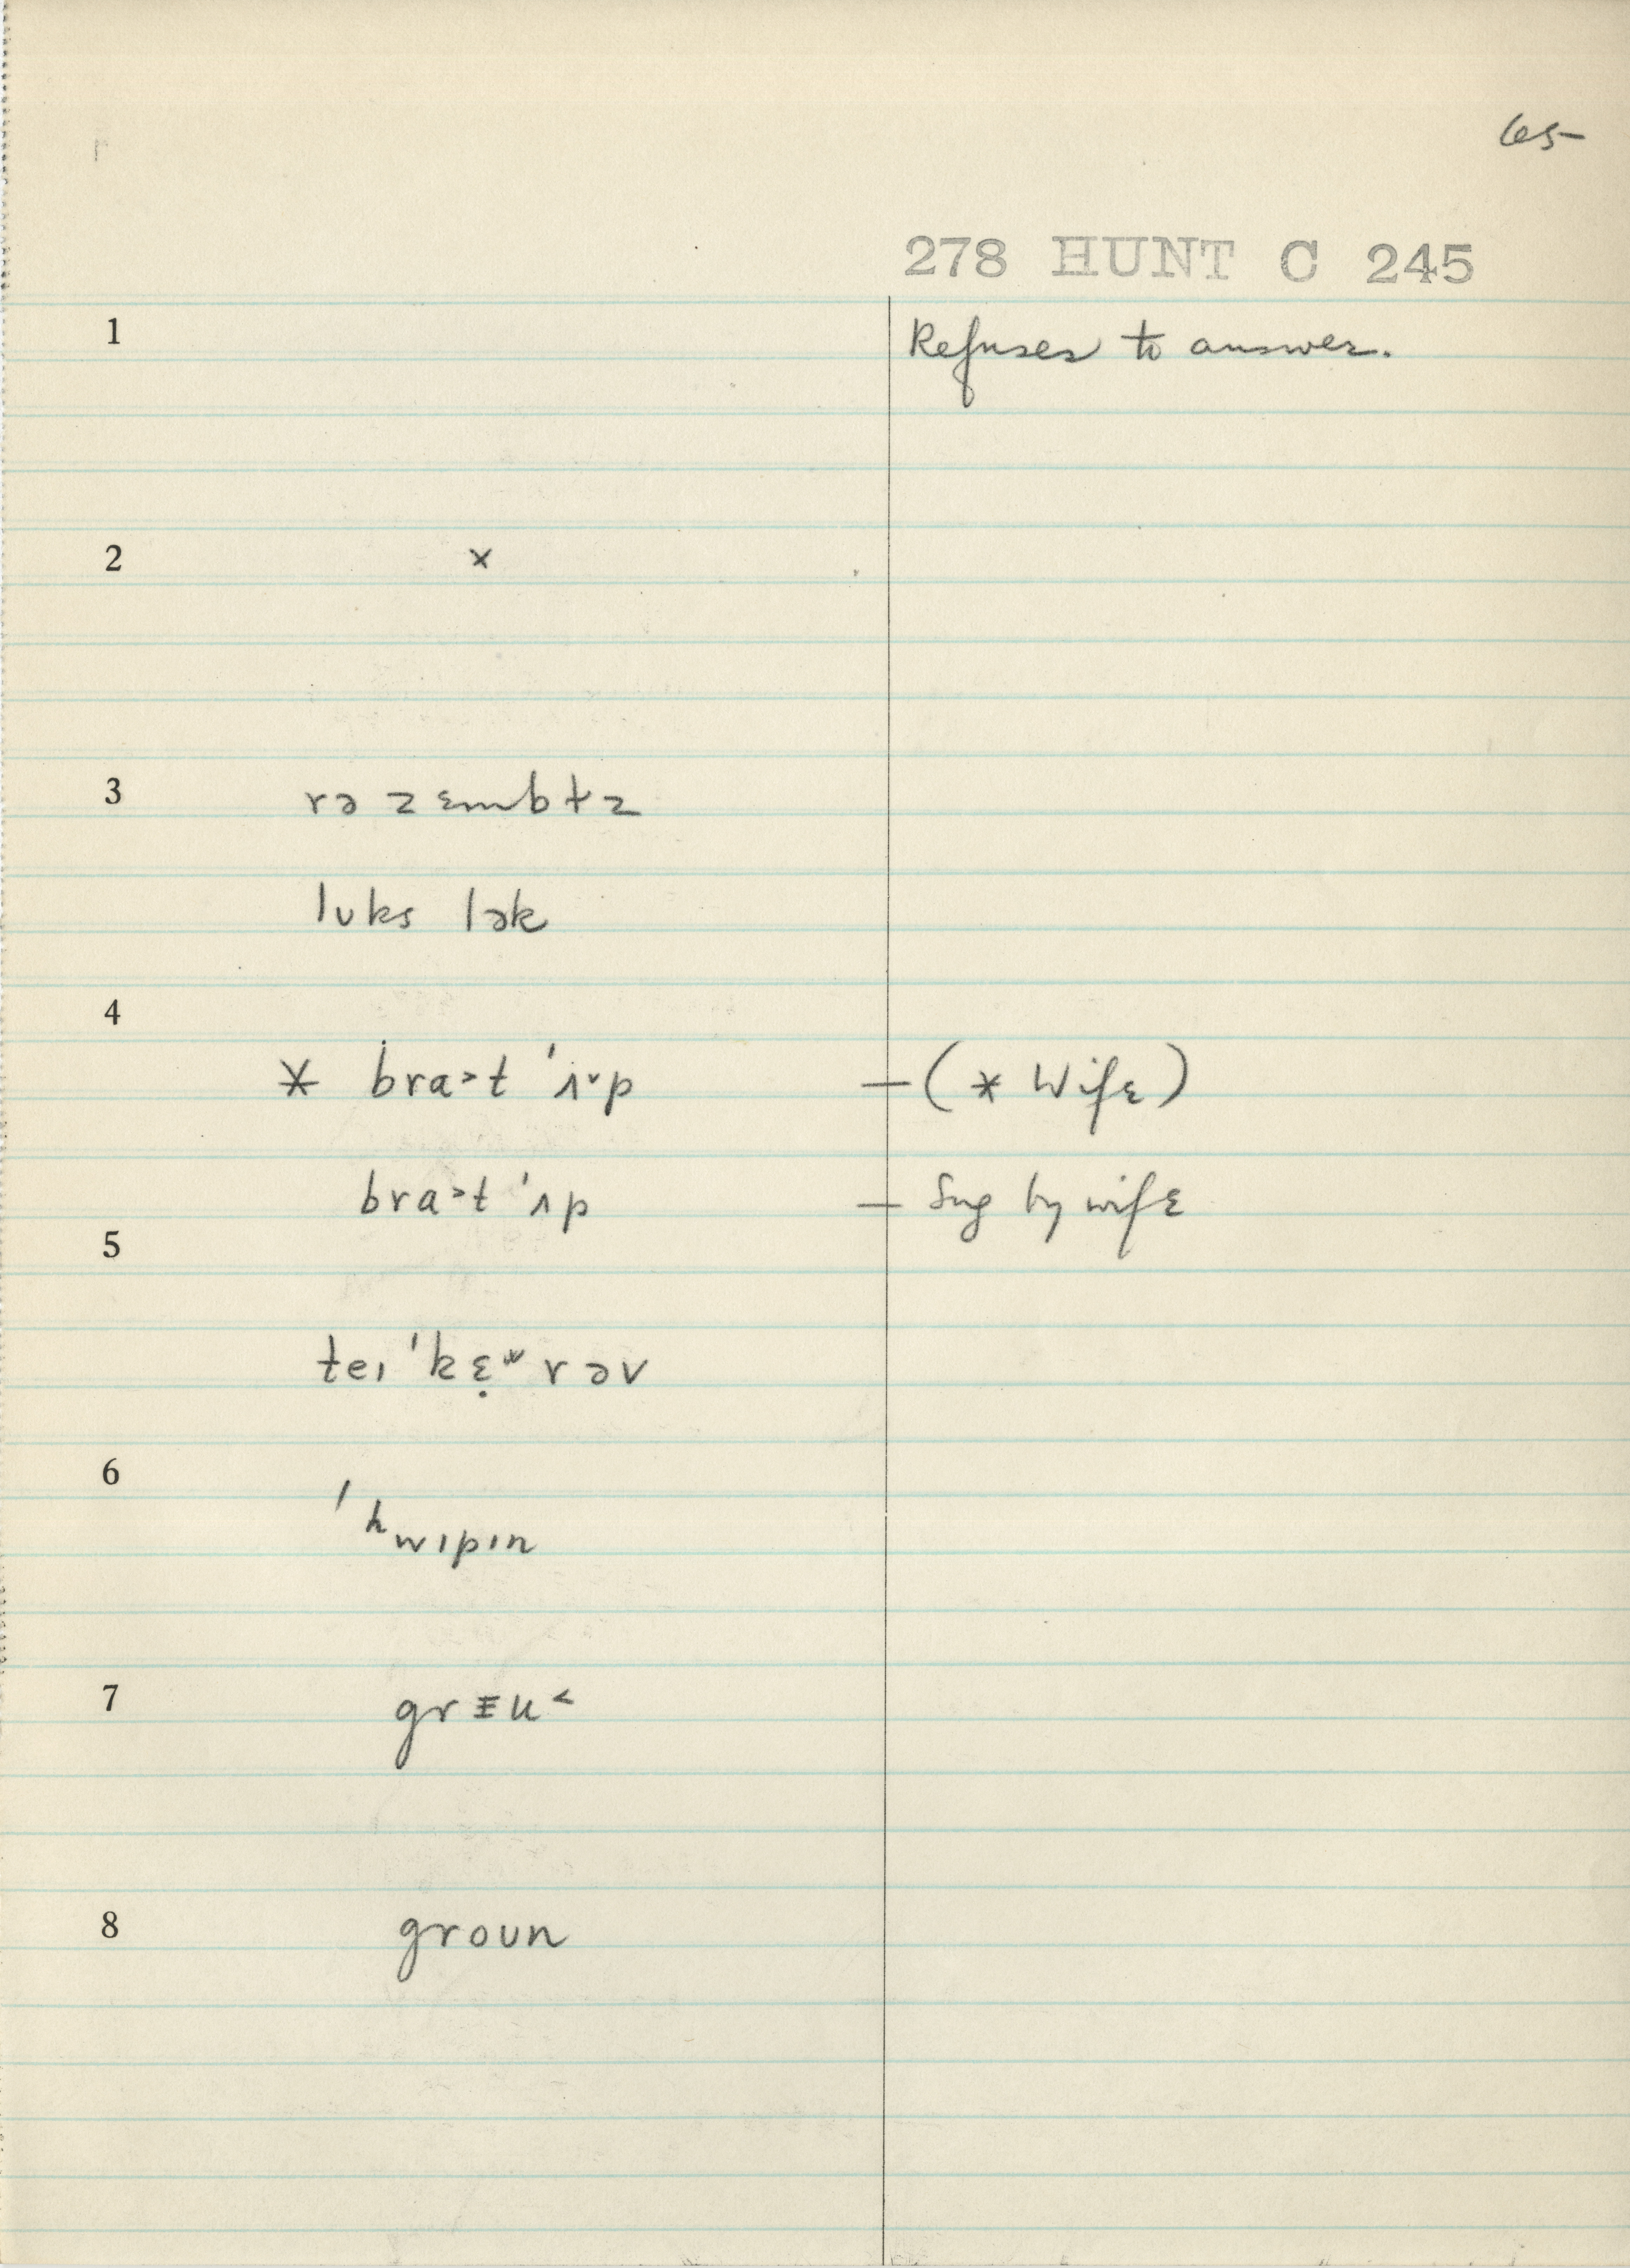 65
278 HUNT C 245
1 Refuses to answer.
2 ×
3 rə zɛmbɫz
lʊks lək
4
* bra˃t ˈʌ˅p — (* Wife)
bra˃t ˈʌp — Sug by wife
5
teɪ ˈkɛ̣ʷ rəv
6
ˈʰwɪpɪn
7 grᴲu˂
8 groʊn